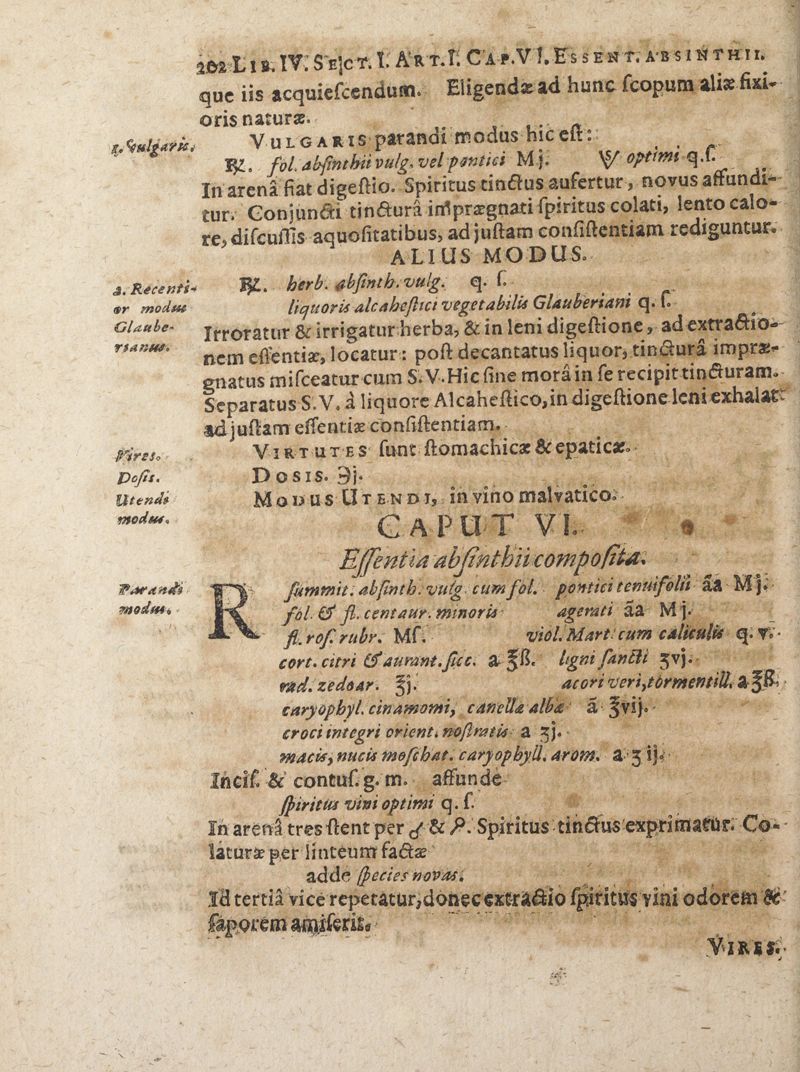 202 LIB. IV. SECT. I. ART. I. CAP. VI. ESSENT. ABSINTHII.
que iis acquieſcendum. Eligendæ ad hunc ſcopum aliæ fixi-
oris naturæ.
1. Vulgaris.
VULGARIS parandi modus hic eſt:
℞. fol. abſinthii vulg. vel pontici Mj. optimi q.ſ.
In arenâ fiat digeſtio. Spiritus tinctus aufertur, novus affundi-
tur. Conjuncti tincturâ imprægnati ſpiritus colati, lento calo-
re, diſcuſſis aquoſitatibus, ad juſtam conſiſtentiam rediguntur.
ALIUS MODUS.
2. Recenti-
or modus
Glaube-
rianus.
℞. herb. abſinth. vulg. q. ſ.
liquoris alcaheſtici vegetabilis Glauberiani q. ſ.
Irroratur & irrigatur herba, & in leni digeſtione, ad extractio-
nem eſſentiæ, locatur: poſt decantatus liquor, tincturâ impræ-
gnatus miſceatur cum S. V. Hic ſine morâ in ſe recipit tincturam.
Separatus S. V. â liquore Alcaheſtico, in digeſtione leni exhalat
ad juſtam eſſentiæ conſiſtentiam.
Vires.
VIRTUTES ſunt ſtomachicæ & epaticæ.
Doſis.
DOSIS. ℈j.
Utendi
modus.
MODUS UTENDI, in vino malvatico.
CAPUT VI.
Eſſentia abſinthii compoſita.
Parandi
modus.
R ſummit. abſinth. vulg. cum fol. pontici tenuifolii āā Mj.
fol. & fl. centaur. minoris agerati āā Mj.
fl. roſ. rubr. Mſ. viol. Mart. cum caliculis q. v.
cort. citri & aurant. ſicc. a ℥ß. ligni ſancti ʒvj.
rad. zedoar. ℥j. acori veri, tormentill. a ℥ß.
caryophyl. cinamomi, canella alba ā ℥vij.
croci integri orient. noſtratis a ʒj.
macis, nucis moſchat. caryophyll. arom. a ʒ ij.
Inciſ. & contuſ. g. m. affunde
ſpiritus vini optimi q. ſ.
In arenâ tres ſtent per & . Spiritus tinctus exprimatur. Co-
laturæ per linteum factæ
adde ſpecies novas.
Id tertiâ vice repetatur, donec extractio ſpiritus vini odorem &
ſaporem amiſerit.
VIRES.